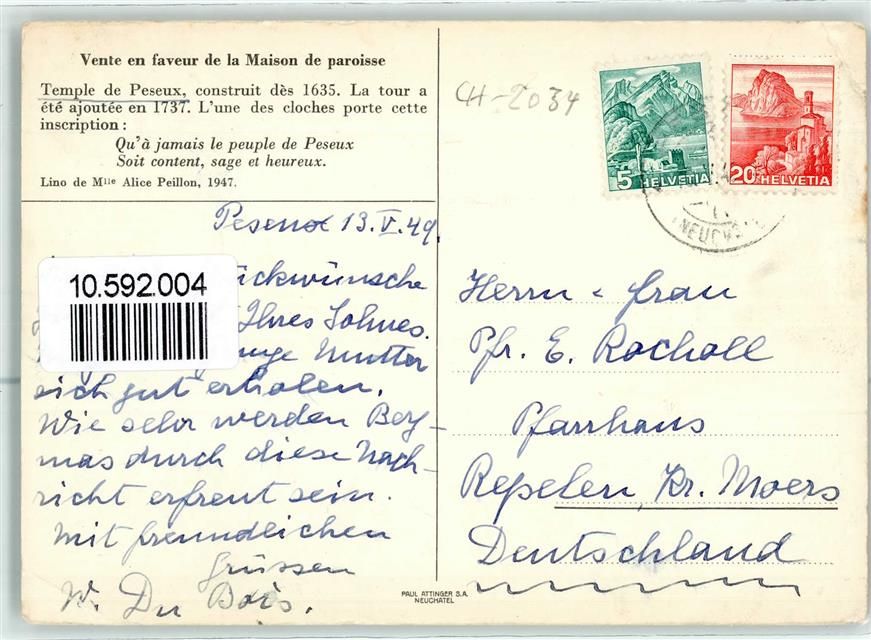 Vente en faveur de la Maison de paroisse
Temple de Peseux, construit dès 1635. La tour a
été ajoutée en 1737. L'une des cloches porte cette
inscription :
Qu'à jamais le peuple de Peseux
Soit content, sage et heureux.
Lino de Mlle Alice Peillon, 1947.
Peseux 13.V.49.
10.592.004
Ihres Sohnes.
Mutter
sich gut erholen.
Wie sehr werden Berg-
mas durch diese Nach-
richt erfreut sein.
Mit freundlichen
Grüssen
W. Du Bois.
PAUL ATTINGER S.A.
NEUCHATEL
CH-2034
5 HELVETIA
20 HELVETIA
Herrn & Frau
Pfr. E. Rocholl
Pfarrhaus
Repelen, Kr. Moers
Deutschland